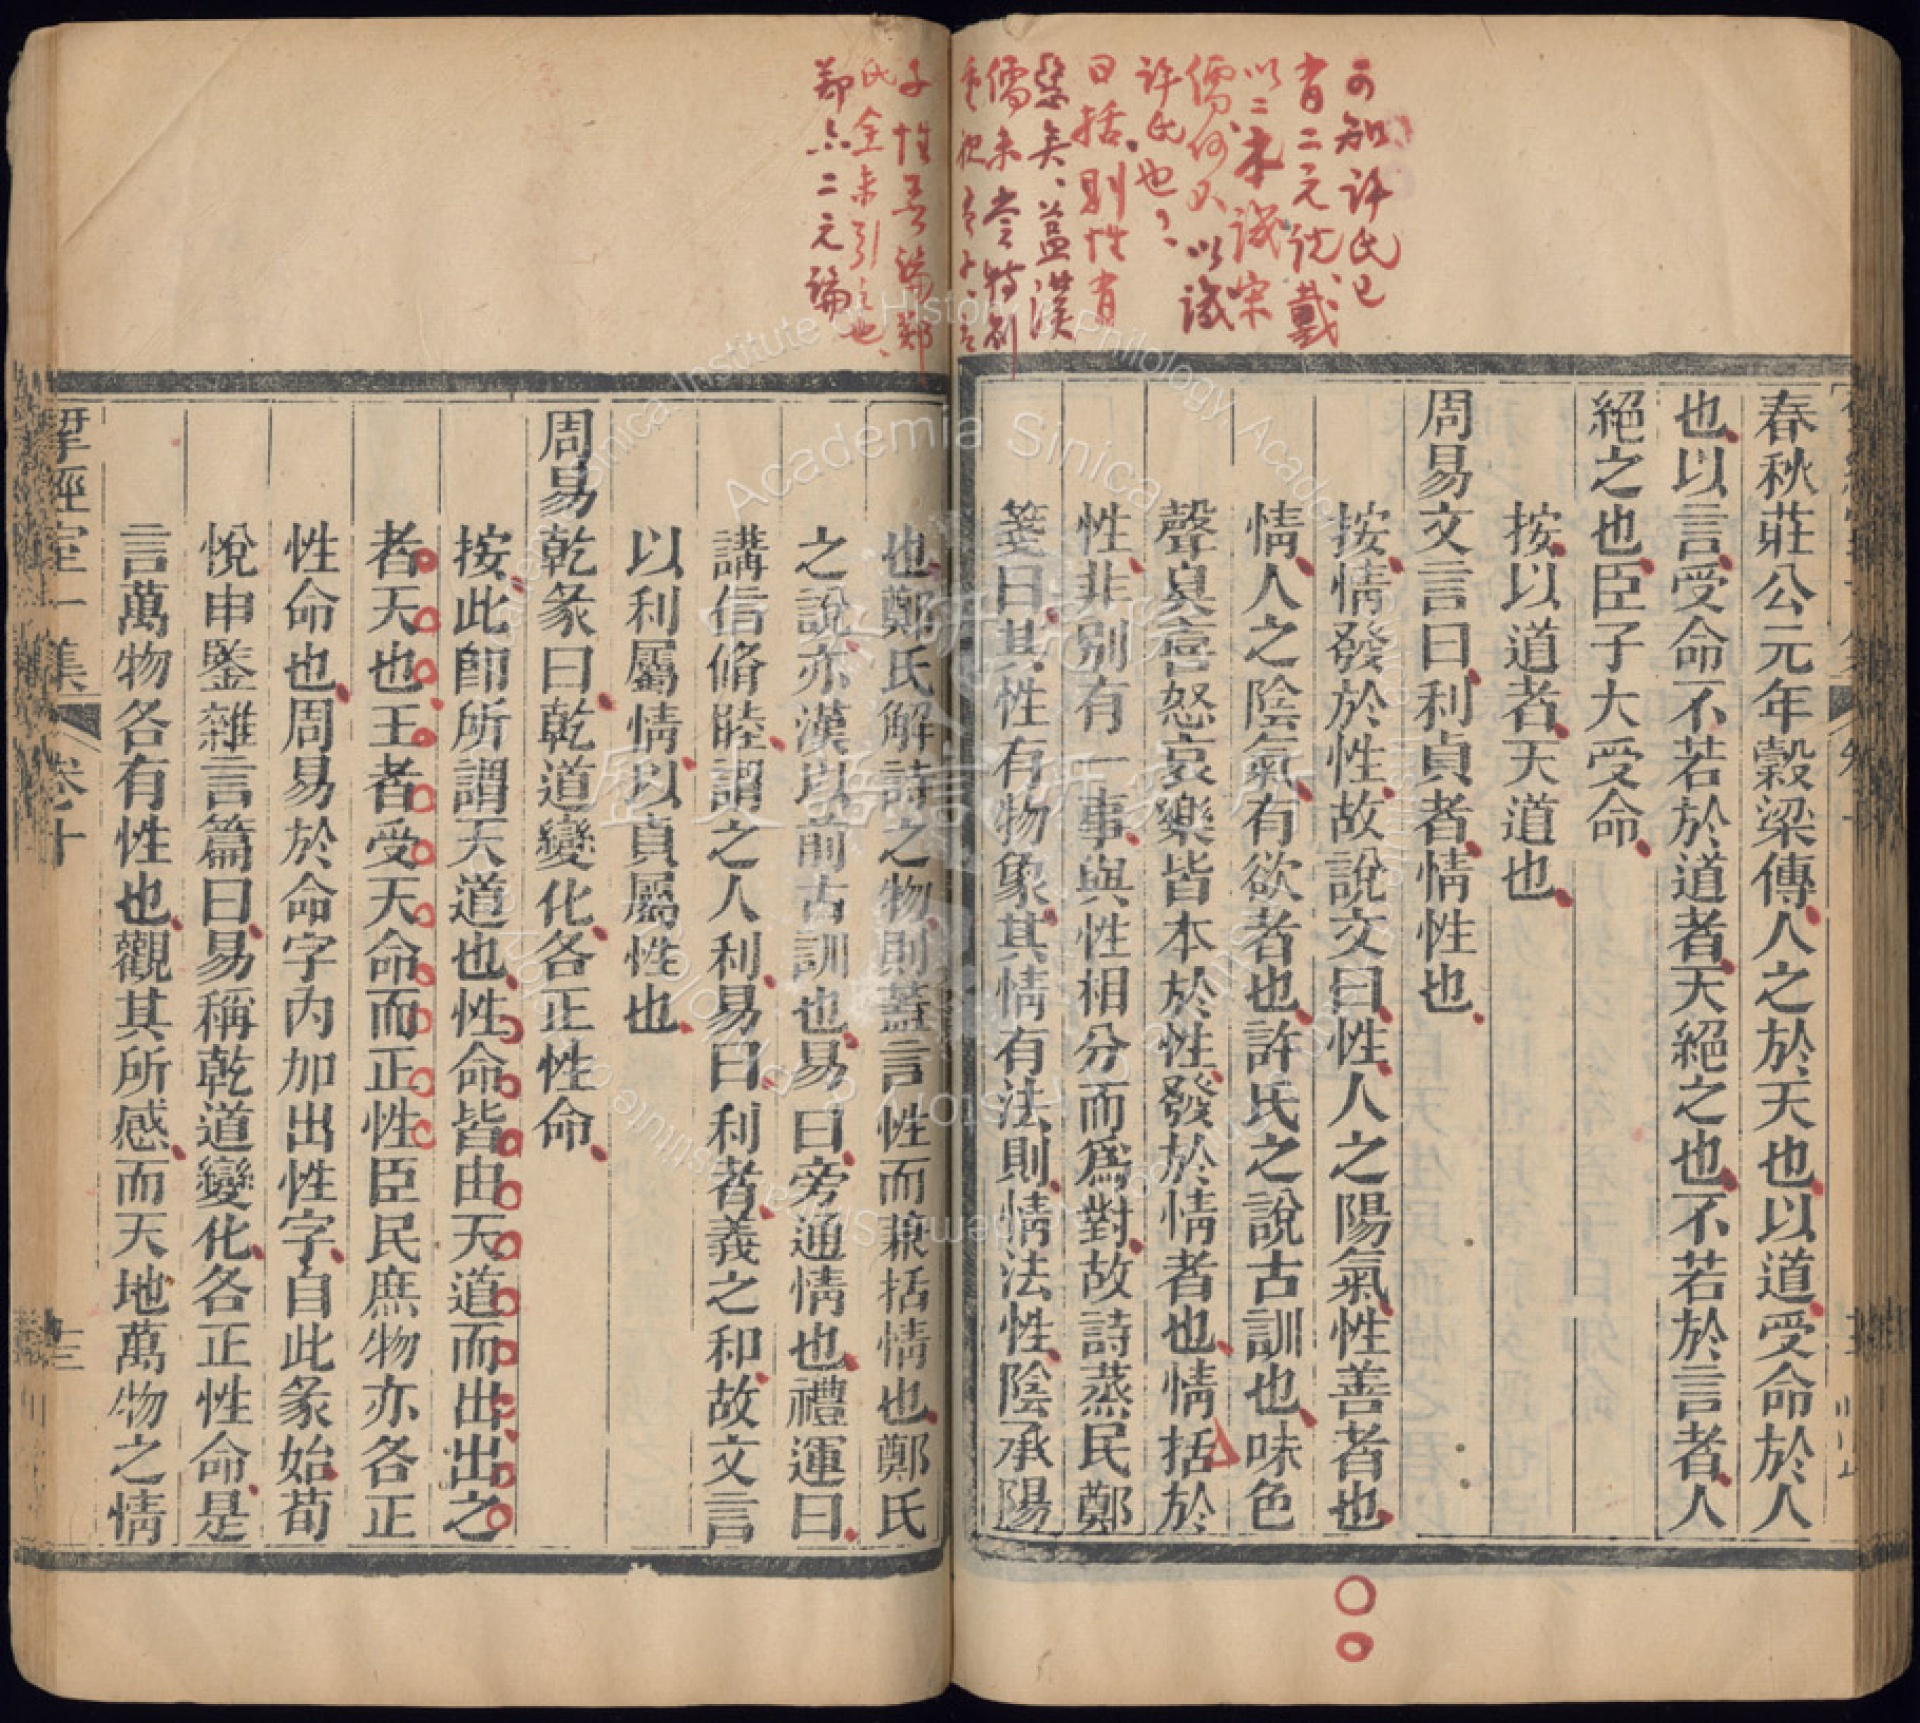 可知許氏已
有二元說、戴
以二本譏宋
儒何不以譏
許氏也？
曰括則性有
惡矣、蓋漢
儒未嘗特別
重視孟子、孟
子性善論鄭
氏全未引之也、
鄭亦二元論
春秋莊公元年穀梁傳人之於天也以道受命於人
也以言受命不若於道者天絕之也不若於言者人
絕之也臣子大受命
按以道者天道也
周易文言曰利貞者情性也
按情發於性故說文曰性人之陽氣性善者也
情人之陰氣有欲者也許氏之說古訓也味色
聲臭喜怒哀樂皆本於性發於情者也情括於
性非別有一事與性相分而爲對故詩蒸民鄭
箋曰其性有物象其情有法則情法性陰承陽
也鄭氏解詩之物則蓋言性而兼括情也鄭氏
之說亦漢以前古訓也易曰旁通情也禮運曰
講信脩睦謂之人利易曰利者義之和故文言
以利屬情以貞屬性也
周易乾彖曰乾道變化各正性命
按此卽所謂天道也性命皆由天道而出出之
者天也王者受天命而正性臣民庶物亦各正
性命也周易於命字內加出性字自此彖始荀
悅申鑒雜言篇曰易稱乾道變化各正性命是
言萬物各有性也觀其所感而天地萬物之情
揅經室一集
卷十
十三
Academia Sinica
歷史語言研究所
Institute of History & Philology, Academia Sinica